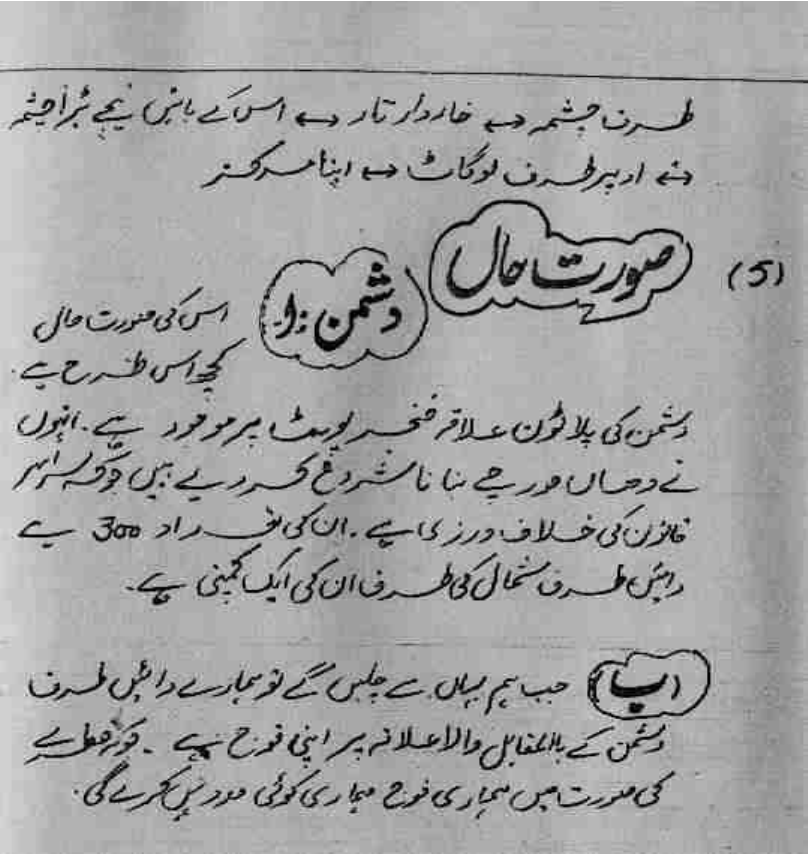 طرف چشمہ ⇦ خاردار تار ⇦ اس کے بائیں نیچے بڑا چشمہ
⇦ اوپر طرف لوگاٹ ⇦ اپنا مرکز
(5) صورت حال
دشمن :۔ اس کی صورت حال
کچھ اس طرح ہے۔
دشمن کی پلاٹون علاقہ فنجر پوسٹ پر موجود ہے۔ انہوں
نے وھاں مورچے بنانا شروع کر دیے ہیں جو کہ سراسر
قانون کی خلاف ورزی ہے۔ ان کی تعداد 300 ہے
دائیں طرف شمال کی طرف ان کی ایک کمپنی ہے۔
اپنا جب ہم یہاں سے چلیں گے تو ہمارے دائیں طرف
دشمن کے بالمقابل والا علاقہ پر اپنی فوج ہے۔
کی صورت میں ہماری فوج ہماری کوئی مدد نہیں کرے گی۔